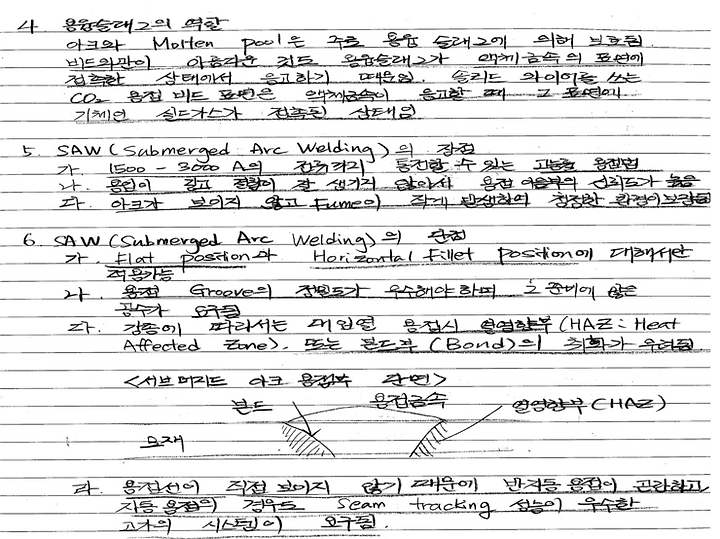 4. 용융슬래그의 역할
아크와 Molten pool은 주로 용융 슬래그에 의해 보호됨.
비드외관이 아름다운 것도 용융슬래그가 액체금속의 표면에
접촉한 상태에서 응고하기 때문임. 솔리드 와이어를 쓰는
CO2 용접 비드 표면은 액체금속이 응고할 때 그 표면에
기체인 실드가스가 접촉된 상태임
5. SAW (Submerged Arc Welding)의 장점
가. 1500 - 3000 A의 전류까지 통전할 수 있는 고능률 용접법
나. 용입이 깊고 결함이 잘 생기지 않아서 용접 이음부의 신뢰도가 높음
다. 아크가 보이지 않고 Fume이 적게 발생하여 청정한 환경이 보장됨
6. SAW (Submerged Arc Welding)의 단점
가. Flat position과 Horizontal Fillet position에 대해서만
적용가능
나. 용접 Groove의 정밀도가 우수해야 하며 그 준비에 많은
공수가 요구됨
다. 강종에 따라서는 대입열 용접시 열영향부 (HAZ: Heat
Affected Zone). 또는 본드부 (Bond)의 취화가 우려됨.
<서브머지드 아크 용접부 단면>
본드 용접금속 열영향부 (HAZ)
모재
라. 용접선이 직접 보이지 않기 때문에 반자동 용접이 곤란하고
자동 용접의 경우도 Seam tracking 성능이 우수한
고가의 시스템이 요구됨.